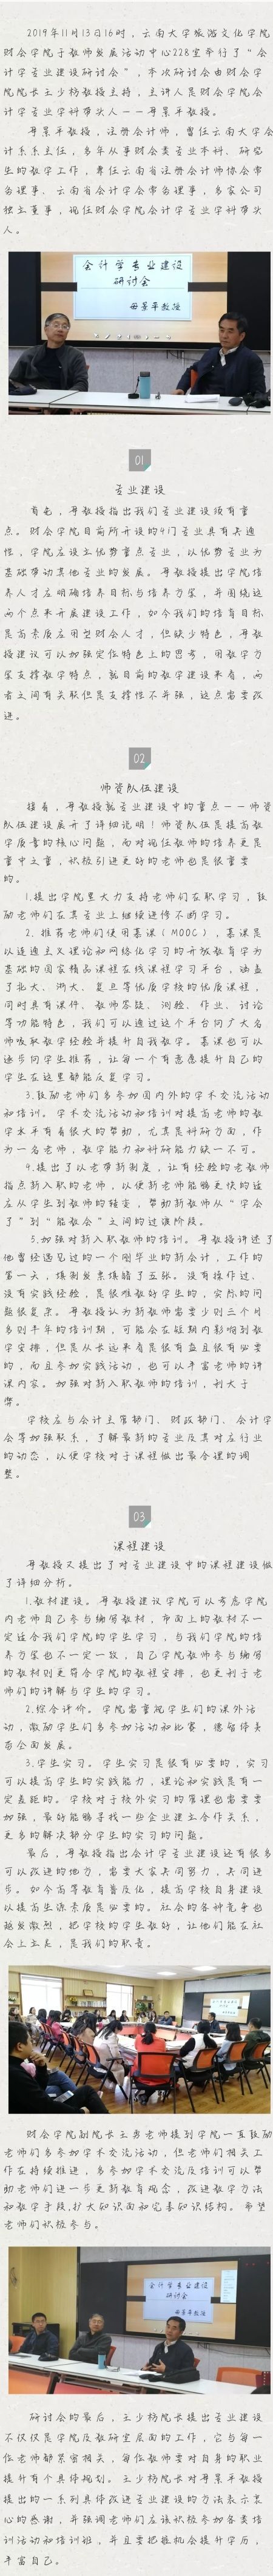 2019年11月13日16时，云南大学旅游文化学院
财会学院于教师发展活动中心228室举行了“会
计学专业建设研讨会”，本次研讨会由财会学
院院长王少杨教授主持，主讲人是财会学院会
计学专业学科带头人——毋景平教授。
毋景平教授，注册会计师，曾任云南大学会
计系系主任，多年从事财会类专业本科、研究
生的教学工作，兼任云南省注册会计师协会常
务理事、云南省会计学会常务理事，多家公司
独立董事，现任财会学院会计学专业学科带头
人。
会计学专业建设
研讨会
毋景平教授
01
专业建设
首先，毋教授指出我们专业建设须有重
点。财会学院目前所开设的4门专业具有共通
性，学院应设立优势重点专业，以优势专业为
基础带动其他专业的发展。毋教授提出学院培
养人才应明确培养目标与培养方案，并围绕这
两个点来开展建设工作，如今我们的培育目标
是高素质应用型财会人才，但缺少特色，毋教
授建议可以加强定位特色上的思考，用教学方
案支撑教学特点，就目前的教学建设来看，两
者之间有关联但是支撑性不并强，这点需要改
进。
02
师资队伍建设
接着，毋教授就专业建设中的重点——师资
队伍建设展开了详细说明！师资队伍是提高教
学质量的核心问题，而对现任教师的培养更是
重中之重，积极引进更好的老师也是很重要
的。
1.提出学院里大力支持老师们在职学习，鼓
励老师们在其专业上继续进修不断学习。
2.推荐老师们使用慕课（MOOC），慕课是
以连通主义理论和网络化学习的开放教育学为
基础的国家精品课程在线课程学习平台，涵盖
了北大、浙大、复旦等优质学校的优质课程，
同时具有课件、教师答疑、测验、作业、讨论
等功能特色，我们可以通过这个平台向广大名
师吸取教学经验并提升自我教学。慕课也可以
逐步向学生推荐，让每一个有意愿提升自己的
学生在这里都能反复学习。
3.鼓励老师们多参加国内外的学术交流活动
和培训。学术交流活动和培训对提高老师的教
学水平有着很大的帮助，尤其是科研方面，作
为一名老师，教学能力和科研能力缺一不可。
4.提出了以老带新制度，让有经验的老教师
指点新入职的老师，以便新老师能够更快的适
应从学生到教师的转变，帮助新教师从“学会
了”到“能教会”之间的过渡阶段。
5.加强对新入职教师的培训。毋教授讲述了
他曾经遇见过的一个刚毕业的新会计，工作的
第一天，填制发票填错了五张。没有操作过、
没有实践经验，是很难教好学生的，实际的问
题很复杂。毋教授认为新教师需要少则三个月
多则半年的培训期，可能会在短期内影响到教
学安排，但是从长远来看是很有益且很有必要
的，而且参加实践活动，也可以丰富老师的讲
课内容。加强对新入职教师的培训，利大于
弊。
学校应与会计主管部门、财政部门、会计学
会等加强联系，了解最新的专业及其对应行业
的动态，以便学校对于课程做出最合理的调
整。
03
课程建设
毋教授又提出了对专业建设中的课程建设做
了详细分析。
1.教材建设。毋教授建议学院可以考虑学院
内老师自己参与编写教材，市面上的教材不一
定适合我们学院的学生学习，与我们学院的培
养方案也不一定一致，自己学院教师参与编写
的教材则更符合学院的教程安排，也更利于老
师们的讲解与学生的学习。
2.综合评价。学院需重视学生们的课外活
动，激励学生们多参加活动和比赛，德智体美
劳全面发展。
3.学生实习。学生实习是很有必要的，实习
可以提高学生的实践能力，理论和实践是有一
定差距的。学校对于校外实习的管理也需要要
加强，最好能够寻找一些企业建立合作关系，
更多的解决部分学生的实习的问题。
最后，毋教授指出会计学专业建设还有很多
可以改进的地方，需要大家共同努力，共同进
步。如今高等教育普及化，提高学校自身建设
以提高生源素质是必要的。社会的各种竞争也
越发激烈，把学校的学生教好，让他们能在社
会上立足，是我们的职责。
财会学院副院长王秀老师提到学院一直鼓励
老师们多参加学术交流活动，但老师们相关工
作在持续推进，多参加学术交流及培训可以帮
助老师们进一步更新教育观念，改进教学方法
和教学手段,扩大知识面和完善知识结构。希望
老师们积极参与。
会计学专业建设
研讨会
毋景平教授
研讨会的最后，王少杨院长提出专业建设
不仅仅是学院及教研室层面的工作，它与每一
位老师都紧密相关，每位教师要对自身的职业
提升有个具体规划。王少杨院长对毋景平教授
提出的一系列具体改进专业建设的方法表示衷
心的感谢，并强调老师们应该积极参加各类培
训活动和培训班，并且要把握机会提升学历，
丰富自己。